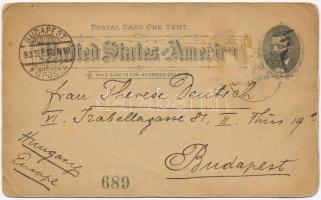 POSTAL CARD ONE CENT.
United States of America
THIS SIDE IS FOR ADDRESS ONLY
BUDAPEST
93 SEP
FŐPOSTA
Frau Therese Deutsch
VI. Izabellagasse 81. II Thür 19
Budapest
Hungary
Europe
689